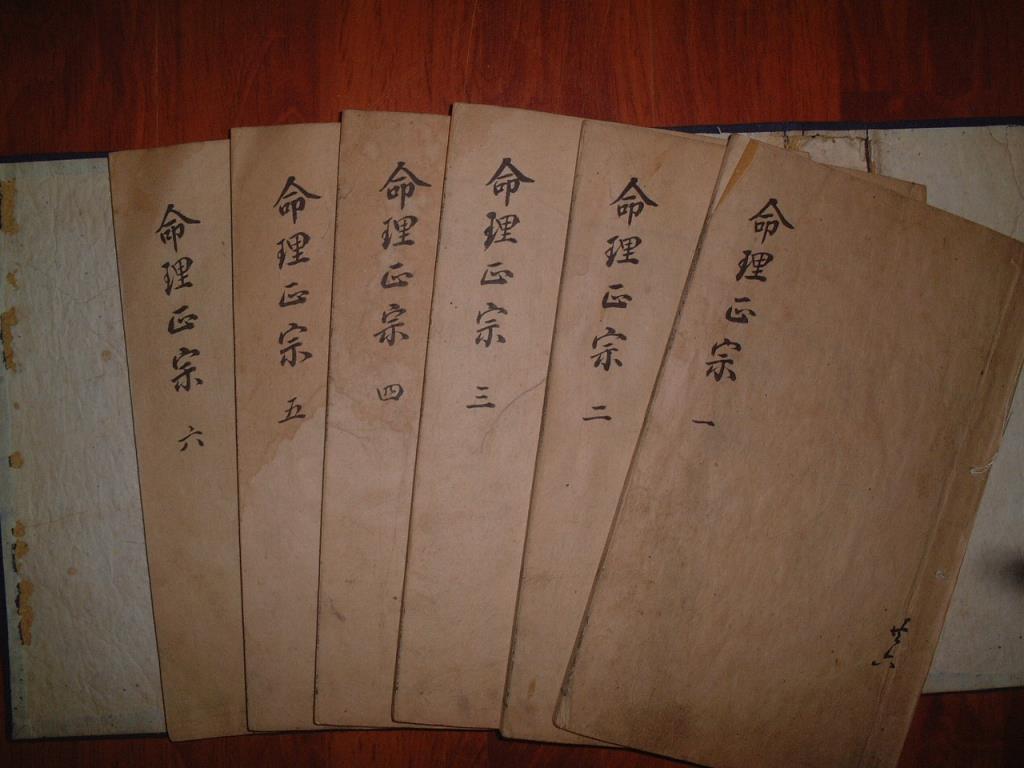 命理正宗 一
命理正宗 二
命理正宗 三
命理正宗 四
命理正宗 五
命理正宗 六